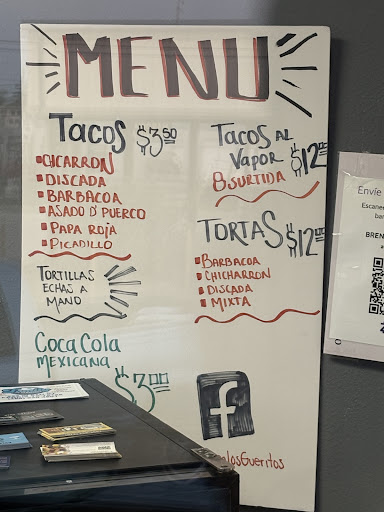 MENU
TACOS $3.50
CHICARRON
DISCADA
BARBACOA
ASADO D' PUERCO
PAPA ROJA
PICADILLO
TORTILLAS
ECHAS A
MANO
COCA COLA
MEXICANA
$3.00
TACOS AL
VAPOR $12.00
8 SURTIDA
TORTAS $12.00
BARBACOA
CHICHARRON
DISCADA
MIXTA
f
losGueritos
Envíe
Escanee
BREN